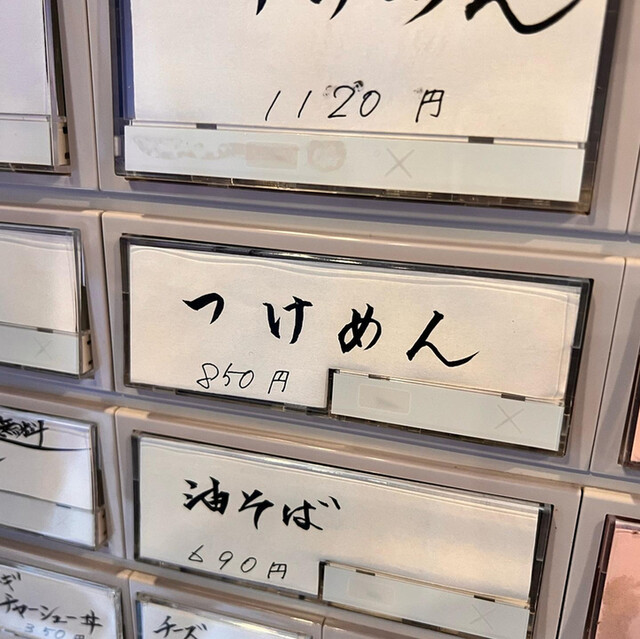 けめん
1120円
つけめん
850円
油そば
690円
無料
チャーシュー丼
350円
チーズ